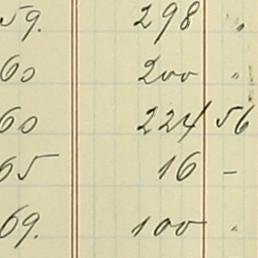 59. 298 "
60 200 "
60 224 56
65 16 –
69. 100 "